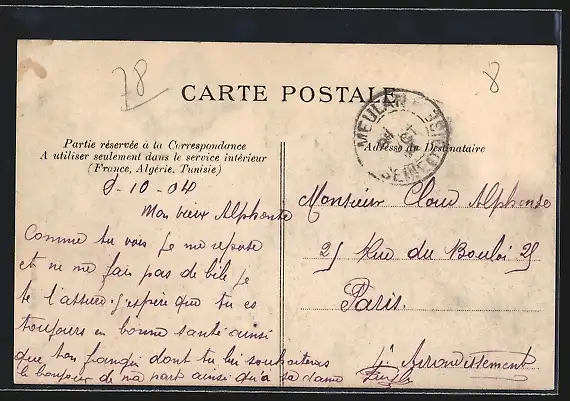 78
8
CARTE POSTALE
MEULAN
Partie réservée à la Correspondance
A utiliser seulement dans le service intérieur
(France, Algérie, Tunisie)
Adresse du Destinataire
9-10-04
Mon vieux Alphonse
Comme tu vois je me repose
et ne me fais pas de bile je
te l'assure j'espère que tu es
toujours en bonne santé ainsi
que ton dont tu lui souhaiteras
le bonjour de ma part ainsi qu'à sa dame
Monsieur Alphonse
25 Rue du Bouloi 25
Paris.
Arrondissement